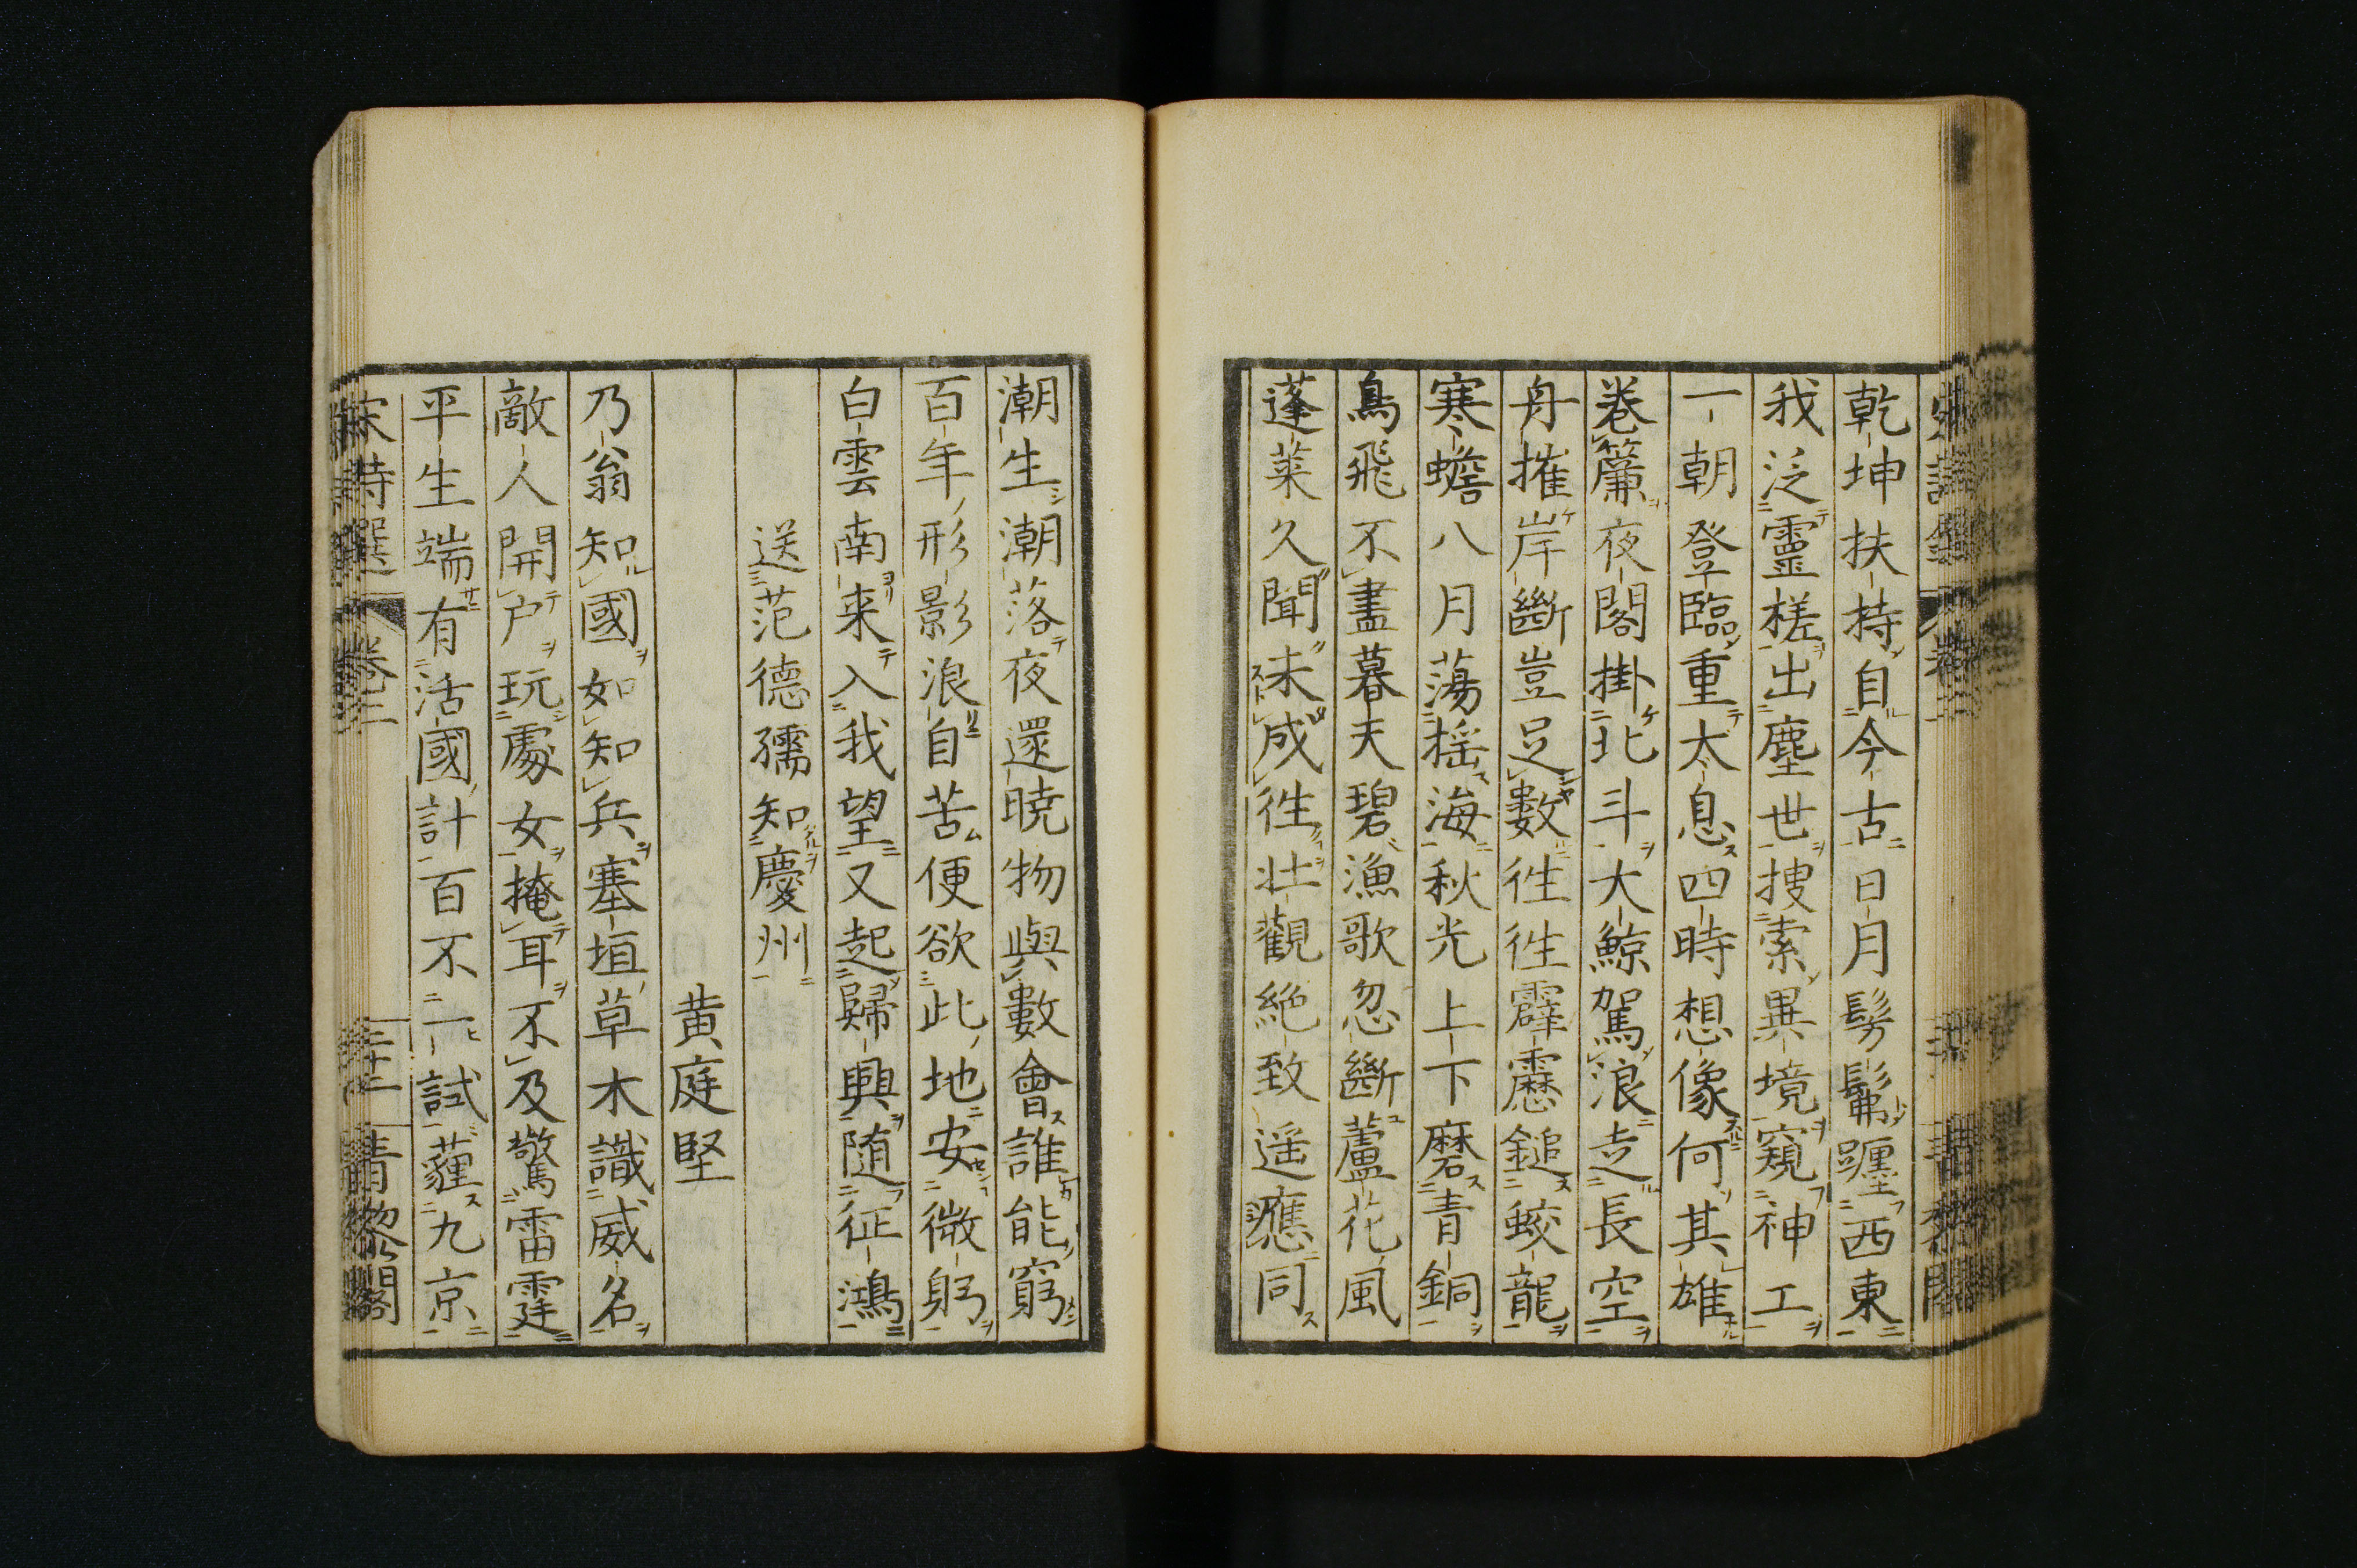 乾坤扶持自今古日月髣髴躔西東
我泛靈槎出塵世搜索異境窺神工
一朝登臨重太息四時想像何其雄
卷簾夜閣掛北斗大鯨駕浪走長空
舟摧岸斷豈足數徃徃霹靂鎚蛟龍
寒蟾八月蕩揺海秋光上下磨青銅
鳥飛不盡暮天碧漁歌忽斷蘆花風
蓬萊久聞未成徃壮觀絶致遥應同
潮生潮落夜還曉物與數會誰能窮
百年形影浪自苦便欲此地安微躬
白雲南来入我望又起歸興随征鴻
送范德孺知慶州
黄庭堅
乃翁知國如知兵塞垣草木識威名
敵人開户玩處女掩耳不及驚雷霆
平生端有活國計百不一試薶九京
宋詩選
卷二
三十二
青黎閣